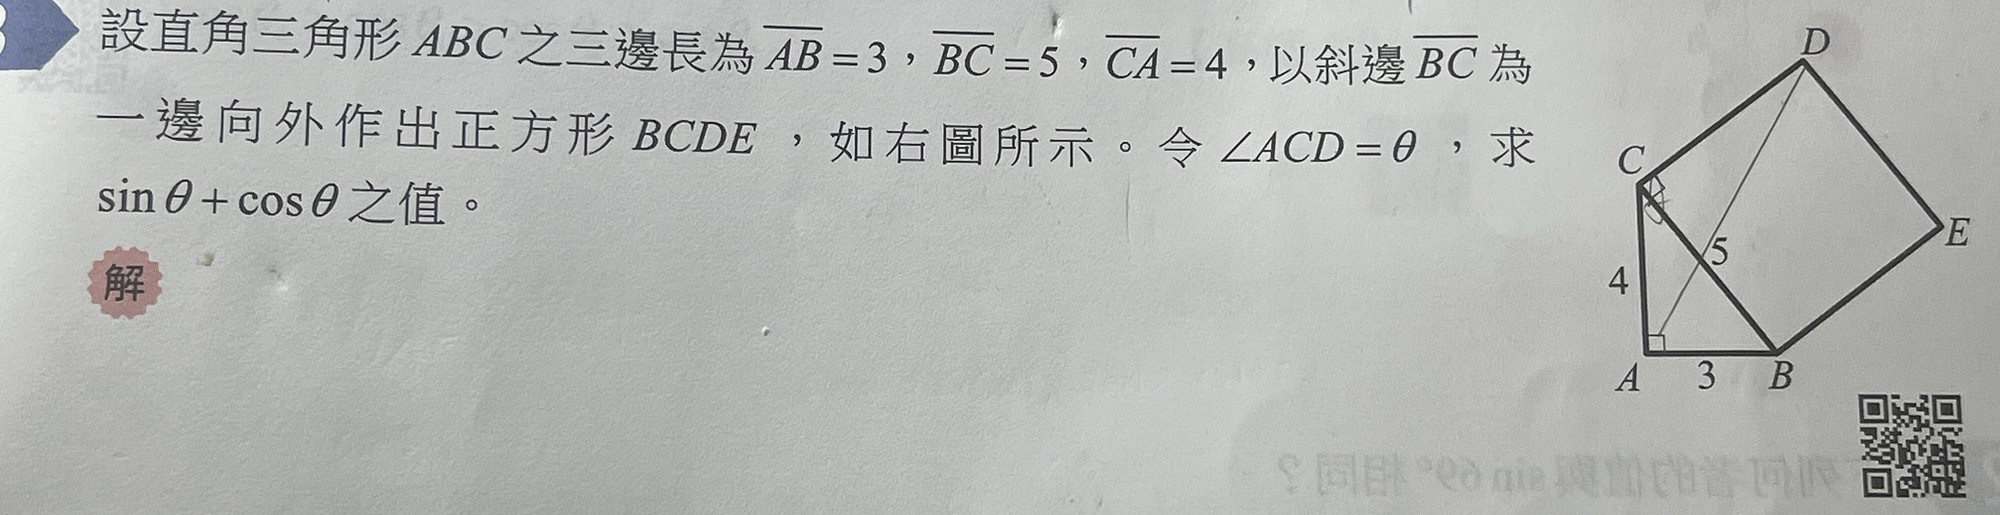 設直角三角形 ABC 之三邊長為 AB = 3，BC = 5，CA = 4，以斜邊 BC 為
一邊向外作出正方形 BCDE，如右圖所示。令 ∠ACD = θ，求
sin θ + cos θ 之值。
解
D
C
E
5
4
A
3
B
列何者的值與 sin 69° 相同？